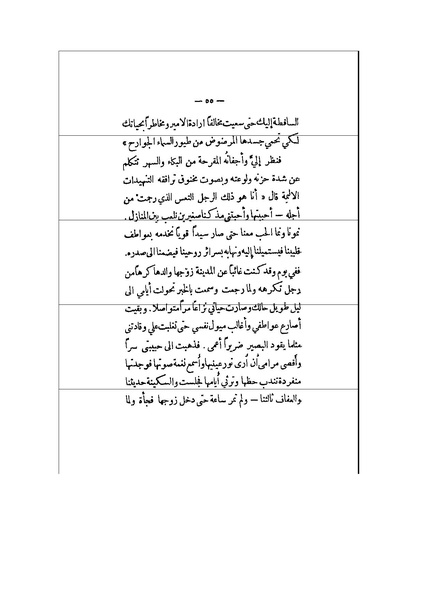 — ٥٥ —
الساقطة إليك حتى سعيت مخالفاً ارادة الامير ومخاطراً بحياتك
لكي تحمي جسدها المرضوض من طيور السماء الجوارح »
فنظر إليَّ وأجفانه المقرحة من البكاء والسهر تتكلم
عن شدة حزنه ولوعته وبصوت مخنوق ترافقه التنهيدات
الاليمة قال « أنا هو ذلك الرجل التعس الذي رجمت من
أجله — أحببتها وأحبتني مذ كنا صغيرين نلعب بين المنازل .
نمونا ونما الحب معنا حتى صار سيداً قوياً نخدمه بعواطف
قلبينا فيستميلنا إليه ونهابه بسرائر روحينا فيضمنا الى صدره .
ففي يوم وقد كنت غائباً عن المدينة زوجها والدها كرهاً من
رجل تكرهه ولما رجعت وسمعت بالخبر تحولت أيامي الى
ليل طويل حالك وصارت حياتي نزاعاً مراً متواصلا . وبقيت
أصارع عواطفي وأغالب ميول نفسي حتى تغلبت علي وقادتني
مثلما يقود البصير ضريراً أعمى . فذهبت الى حبيبتي سراً
وأقصى مرامي أن أرى نور عينيها وأسمع نغمة صوتها فوجدتها
منفردة تندب حظها وترثي أيامها فجلست والسكينة حديثنا
والعفاف ثالثنا — ولم تمر ساعة حتى دخل زوجها فجأة ولما